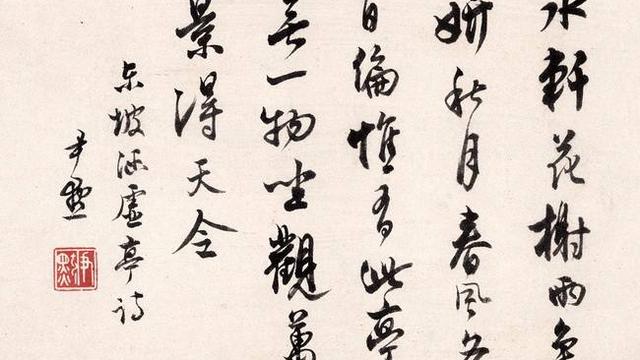 水軒花榭兩争
妍秋月春风各
自偏惟有此亭
无一物坐觀萬
景得天全
东坡涵虛亭诗
尹默
尹默